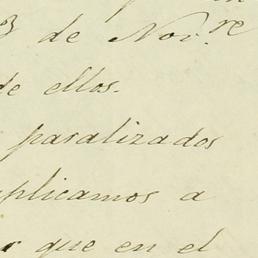 3 de Nov.re
de ellos.
paralizados
plicamos a
que en el